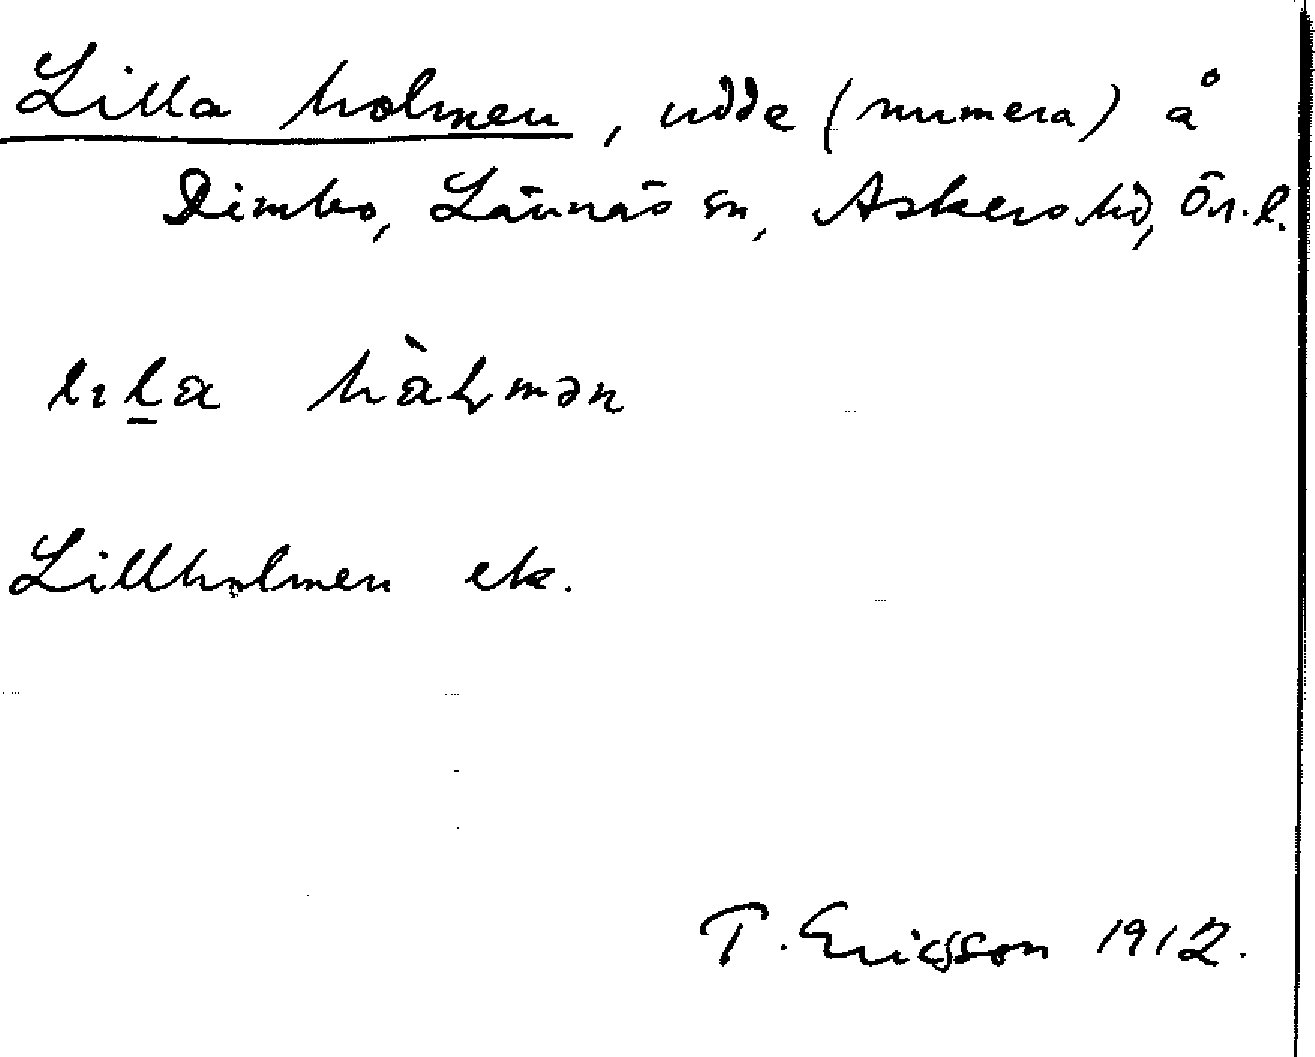 Lilla holmen, udde (numera) å
Dimbo, Lännäs sn, Askers hd, Ör. l.
lɪl̲a hàɫmən
Lillholmen ek.
T. Ericsson 1912.